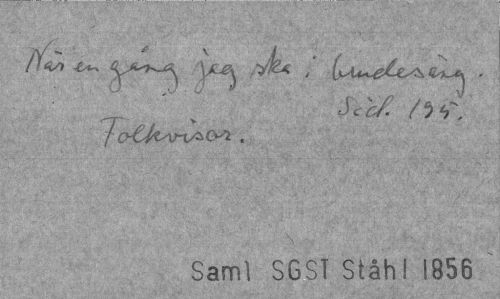 När en gång jag ska i brudesäng.
Sid. 195.
Folkvisor.
Saml SGST Ståhl 1856